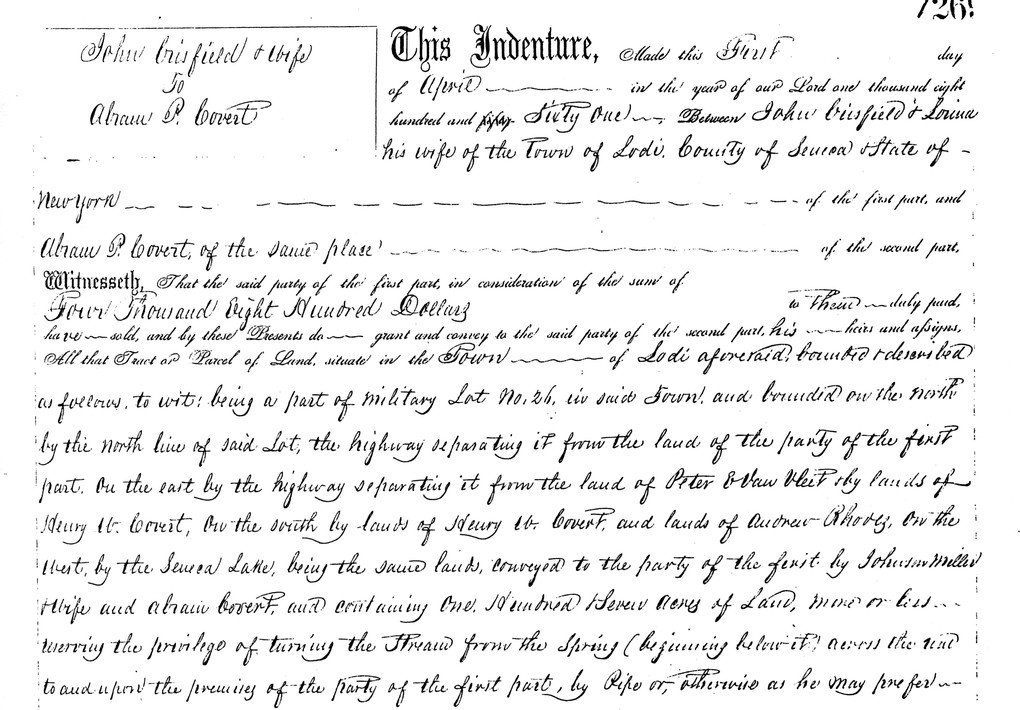 726.
John Crisfield & Wife
To
Abram P. Covert
This Indenture, Made this First day
of April in the year of our Lord one thousand eight
hundred and Sixty One Between John Crisfield & Lorina
his wife of the Town of Lodi, County of Seneca & State of
New York of the first part, and
Abram P. Covert, of the same place of the second part,
Witnesseth, That the said party of the first part, in consideration of the sum of
Four Thousand Eight Hundred Dollars to them duly paid,
have sold, and by these Presents do grant and convey to the said party of the second part, his heirs and assigns,
All that Tract or Parcel of Land, situate in the Town of Lodi aforesaid, bounded & described
as follows, to wit: being a part of military Lot No. 26, in said Town, and bounded on the north
by the north line of said Lot, the highway separating it from the land of the party of the first
part. On the east by the highway separating it from the land of Peter Van Vleit & by lands of
Henry W. Covert, On the south by lands of Henry W. Covert, and lands of Andrew Rhodes, On the
West, by the Seneca Lake, being the same lands, conveyed to the party of the first by Johnson Miller
& Wife and Abram Covert, and containing One Hundred & Seven Acres of Land, more or less
reserving the privilege of turning the Stream from the Spring (beginning below it) across the
to and upon the premises of the party of the first part, by Pipe or, otherwise as he may prefer